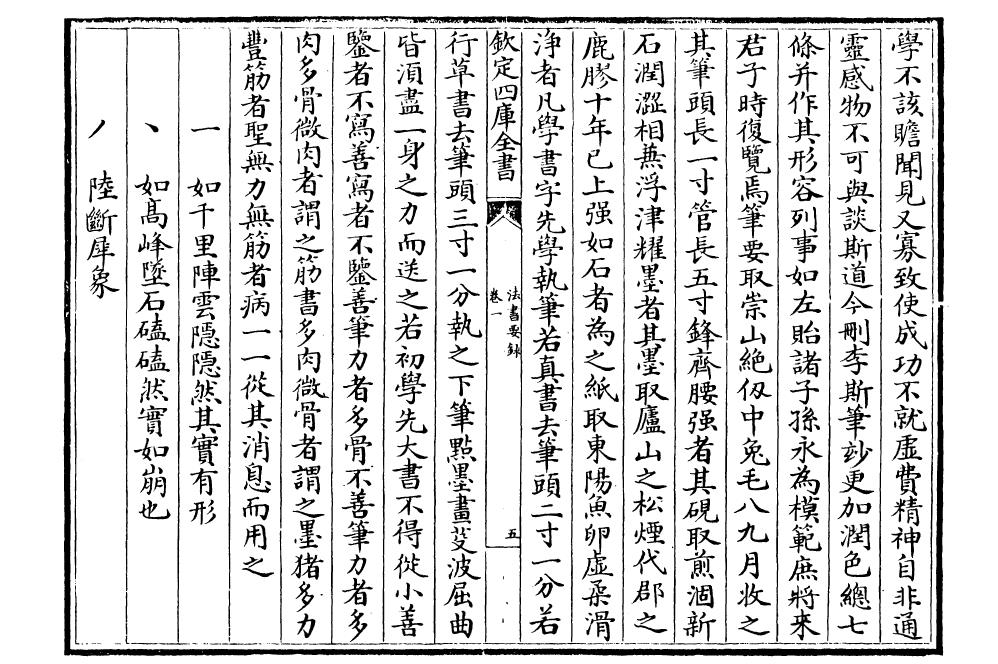 學不該贍聞見又寡致使成功不就虛費精神自非通
靈感物不可與談斯道今刪李斯筆妙更加潤色總七
條并作其形容列事如左貽諸子孫永為模範庶將來
君子時復覽焉筆要取崇山絕仭中兔毛八九月收之
其筆頭長一寸管長五寸鋒齊腰强者其硯取煎涸新
石潤澀相蕪浮津耀墨者其墨取廬山之松煙代郡之
鹿膠十年已上强如石者為之紙取東陽魚卵虛柔滑
浄者凡學書字先學執筆若真書去筆頭二寸一分若
欽定四庫全書
法書要録
卷一
五
行草書去筆頭三寸一分執之下筆㸃墨畫芟波屈曲
皆湏盡一身之力而送之若初學先大書不得從小善
鑒者不寫善寫者不鑒善筆力者多骨不善筆力者多
肉多骨微肉者謂之筋書多肉微骨者謂之墨猪多力
豐筋者聖無力無筋者病一一從其消息而用之
一 如千里陣雲隱隱然其實有形
丶 如髙峰墜石磕磕然實如崩也
丿 陸斷犀象